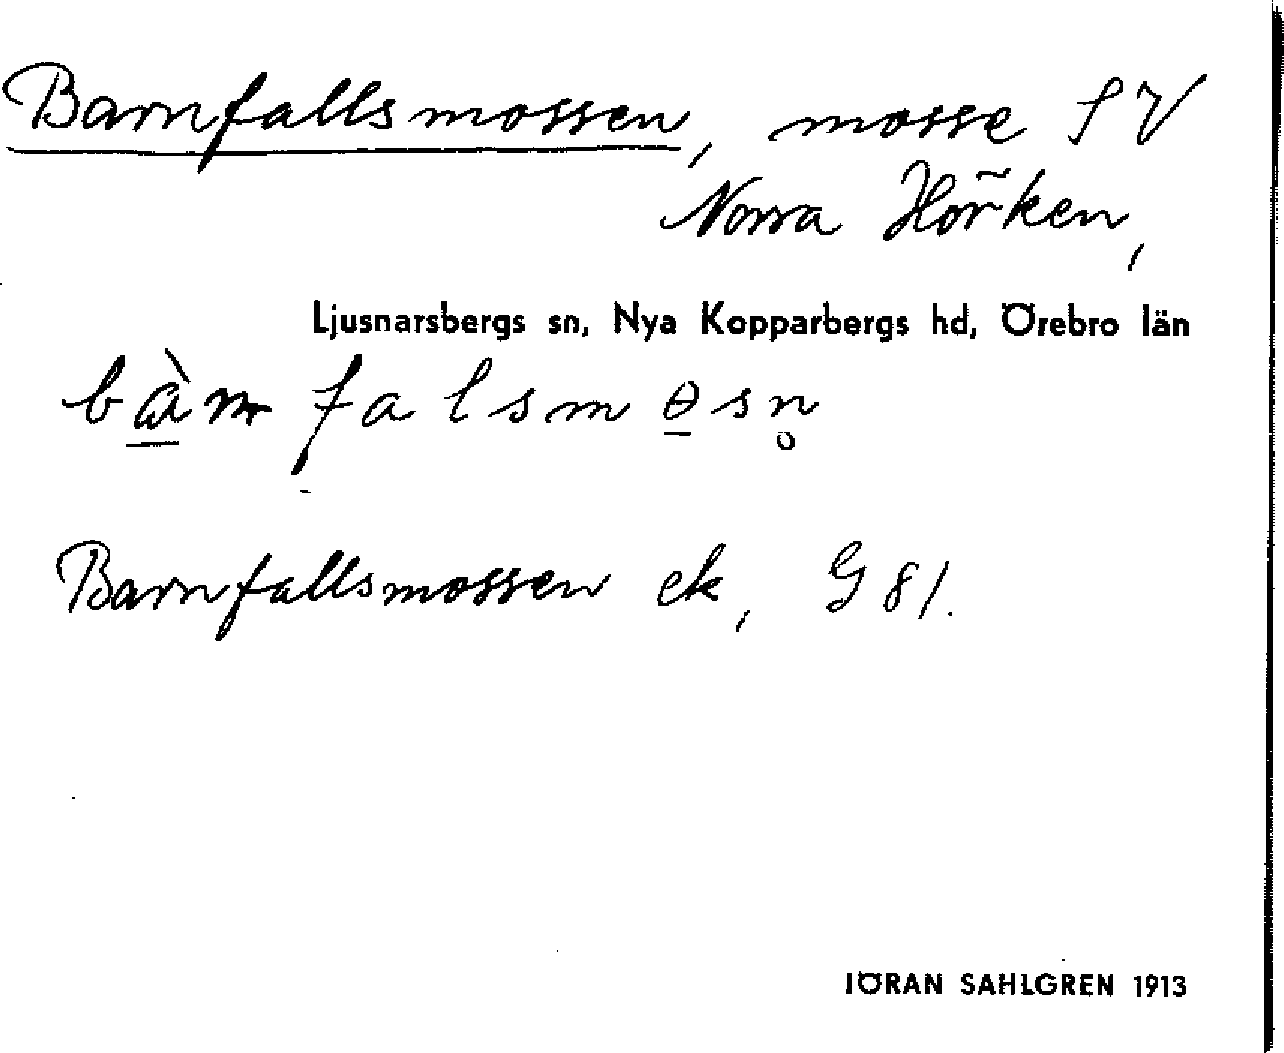 Barnfallsmossen, mosse SV
Norra Hörken,
Ljusnarsbergs sn, Nya Kopparbergs hd, Örebro län
Barnfallsmossen ek, G 81.
JÖRAN SAHLGREN 1913